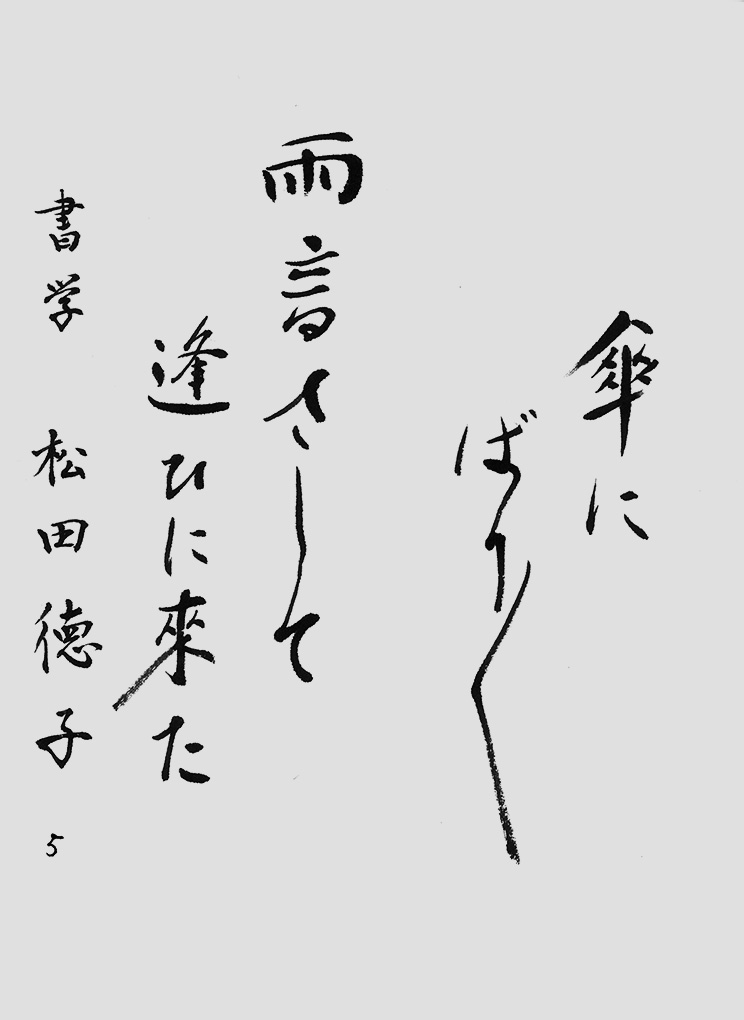 傘に
ばり〱
雨音さして
逢ひに來た
書学 松田德子 5